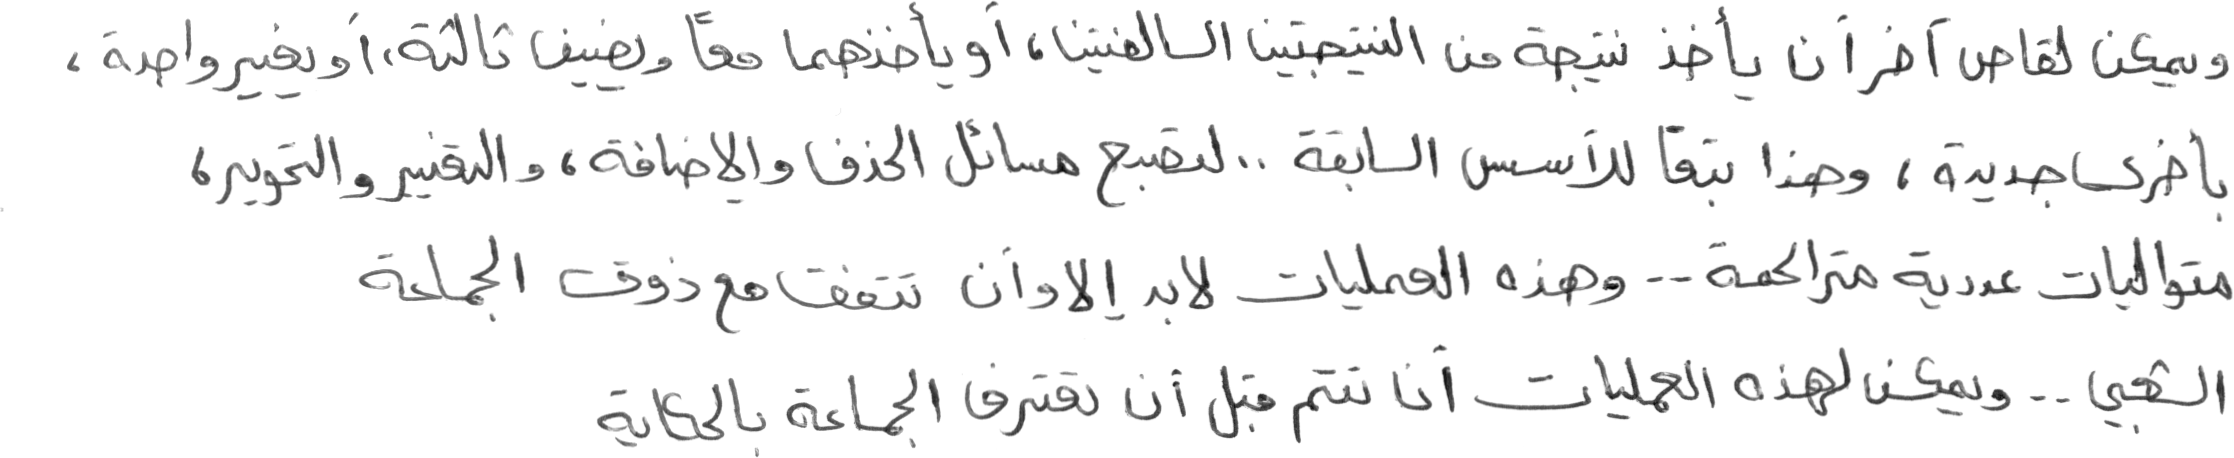 ويمكن لقاص آخر أن يأخذ نتيجة من النتيجتين السالفتين، أو يأخذهما معًا ويضيف ثالثة، أو يغير واحدة،
بأخرى جديدة، وهذا تبعًا للأسس السابقة .. لتصبح مسائل الحذف والإضافة، والتغيير والتحوير،
متواليات عددية متراكمة -- وهذه العمليات لابد إلا وأن تتفق مع ذوق الجماعة
الشعبي .. ويمكن لهذه العمليات أن تتم قبل أن تعترف الجماعة بالحكاية